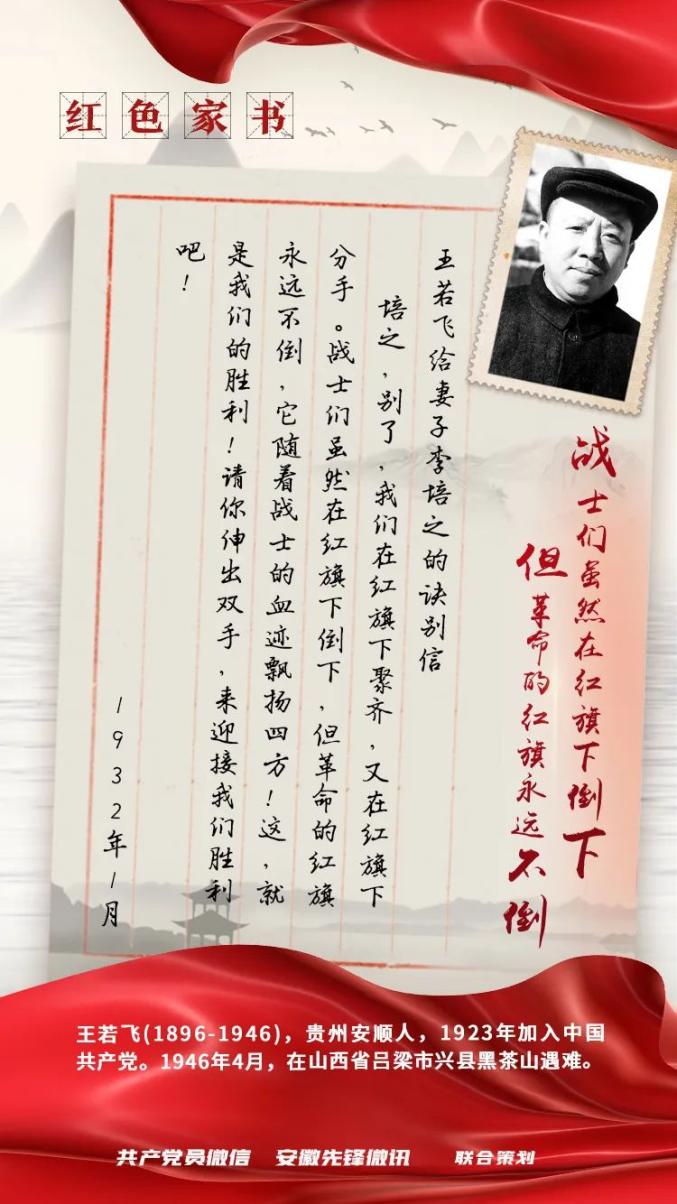 红色家书
战士们虽然在红旗下倒下
但革命的红旗永远不倒
王若飞给妻子李培之的诀别信
培之，别了，我们在红旗下聚齐，又在红旗下
分手。战士们虽然在红旗下倒下，但革命的红旗
永远不倒，它随着战士的血迹飘扬四方！这，就
是我们的胜利！请你伸出双手，来迎接我们胜利
吧！
1932年1月
王若飞(1896-1946)，贵州安顺人，1923年加入中国
共产党。1946年4月，在山西省吕梁市兴县黑茶山遇难。
共产党员微信 安徽先锋微讯 联合策划